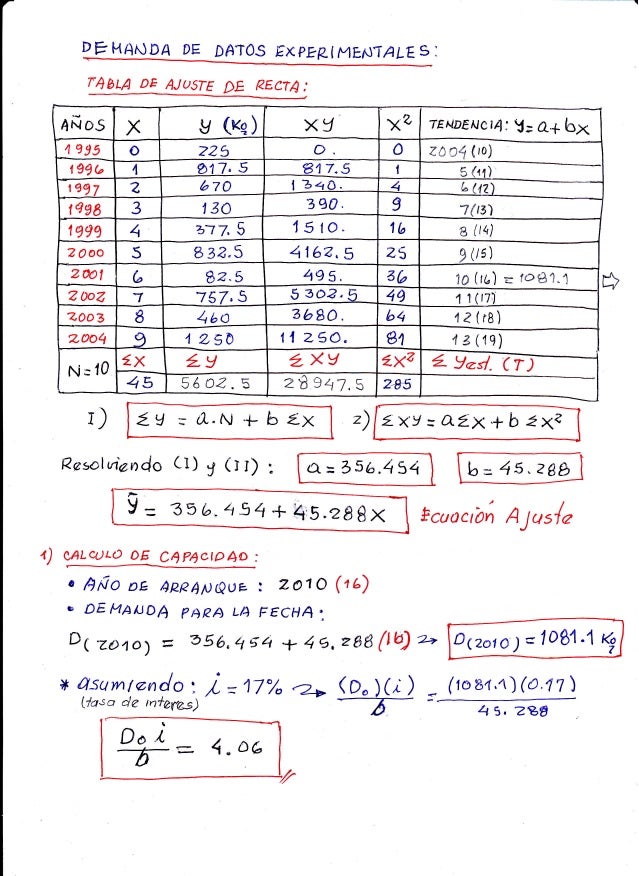 DEMANDA DE DATOS EXPERIMENTALES:
TABLA DE AJUSTE DE RECTA:
AÑOS X y (Kg) xy X² TENDENCIA: y=a+bx
1995 0 225 0. 0 2004 (10)
1996 1 817.5 817.5 1 5 (11)
1997 2 670 1340. 4 6 (12)
1998 3 130 390. 9 7 (13)
1999 4 377.5 1510. 16 8 (14)
2000 5 832.5 4162.5 25 9 (15)
2001 6 82.5 495. 36 10 (16) = 1081.1
2002 7 757.5 5302.5 49 11 (17)
2003 8 460 3680. 64 12 (18)
2004 9 1250 11250. 81 13 (19)
N=10 ΣX Σy ΣXy ΣX² Σ yest. (T)
45 5602.5 28947.5 285
I) Σy = a.N + b Σx 2) Σxy = aΣx + b Σx²
Resolviendo (I) y (II): a=356.454 b=45.288
ȳ = 356.454 + 45.288x Ecuación Ajuste
1) CALCULO DE CAPACIDAD:
• AÑO DE ARRANQUE: 2010 (16)
• DEMANDA PARA LA FECHA:
D(2010) = 356.454 + 45.288 (16) → D(2010) = 1081.1 Kg
* asumiendo: i = 17% → (Do)(i) / b = (1081.1)(0.17) / 45.288
(tasa de interes)
Do i / b = 4.06